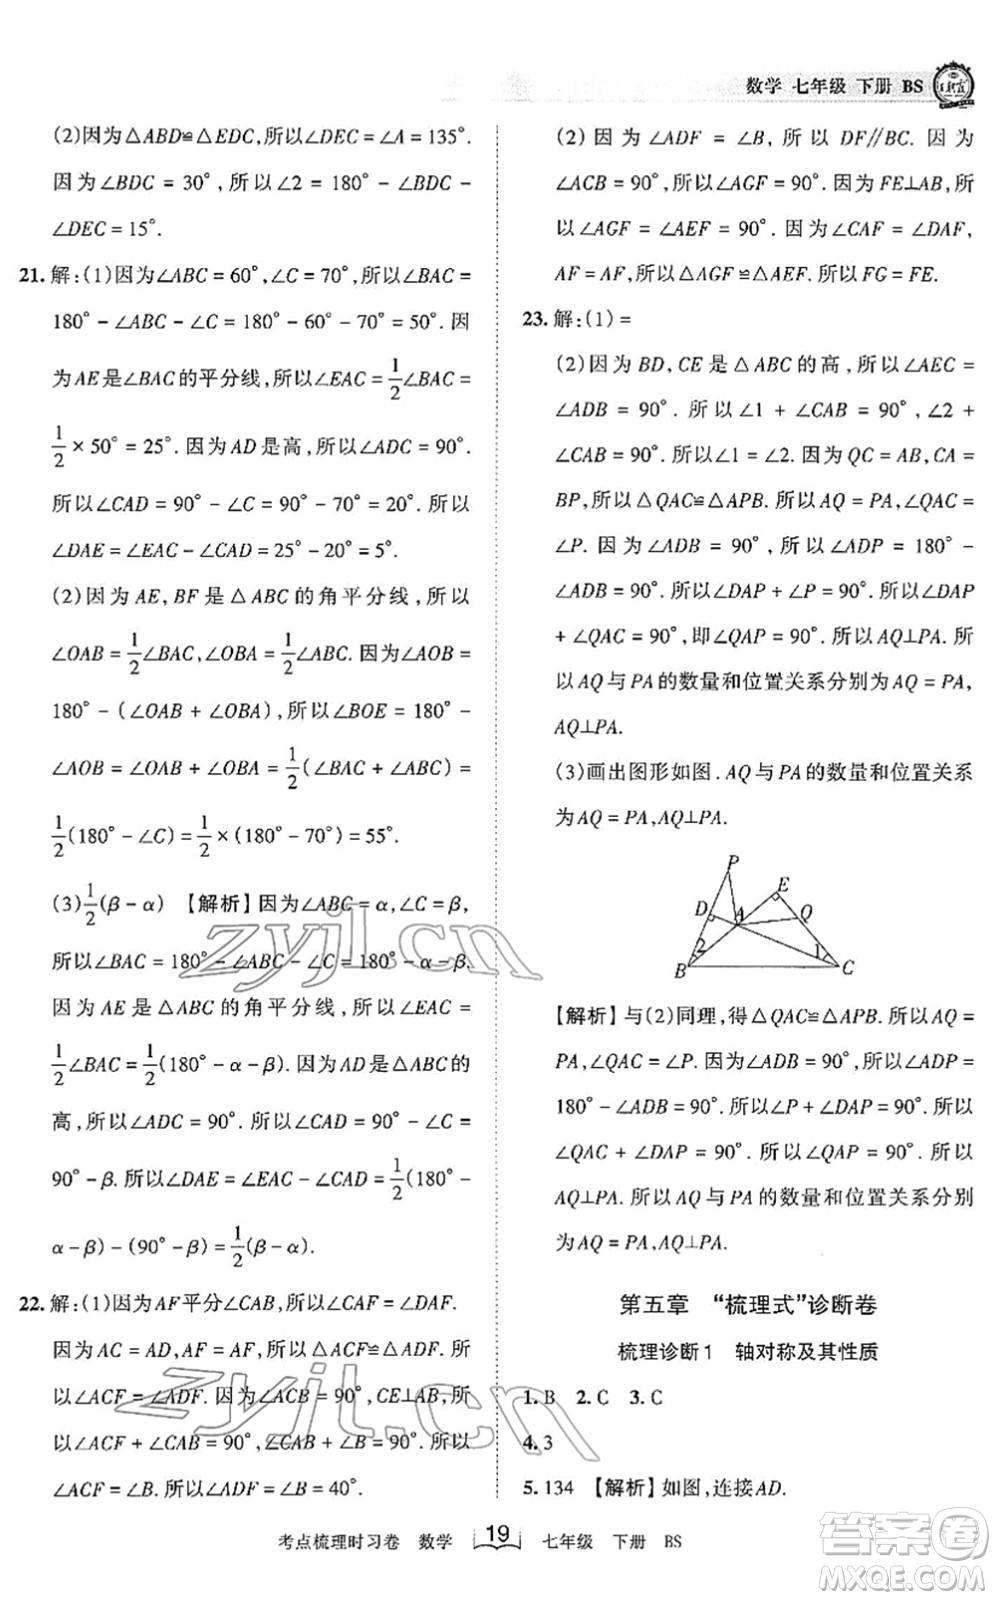 数学 七年级 下册 BS
(2)因为△ABD≌△EDC,所以∠DEC=∠A=135°.
因为∠BDC=30°,所以∠2=180°-∠BDC-
∠DEC=15°.
21.解:(1)因为∠ABC=60°,∠C=70°,所以∠BAC=
180°-∠ABC-∠C=180°-60°-70°=50°.因
为AE是∠BAC的平分线,所以∠EAC=1/2∠BAC=
1/2×50°=25°.因为AD是高,所以∠ADC=90°.
所以∠CAD=90°-∠C=90°-70°=20°.所以
∠DAE=∠EAC-∠CAD=25°-20°=5°.
(2)因为AE,BF是△ABC的角平分线,所以
∠OAB=1/2∠BAC,∠OBA=1/2∠ABC.因为∠AOB=
180°-(∠OAB+∠OBA),所以∠BOE=180°-
∠AOB=∠OAB+∠OBA=1/2(∠BAC+∠ABC)=
1/2(180°-∠C)=1/2×(180°-70°)=55°.
(3)1/2(β-α) 【解析】因为∠ABC=α,∠C=β,
所以∠BAC=180°-∠ABC-∠C=180°-α-β.
因为AE是△ABC的角平分线,所以∠EAC=
1/2∠BAC=1/2(180°-α-β).因为AD是△ABC的
高,所以∠ADC=90°.所以∠CAD=90°-∠C=
90°-β.所以∠DAE=∠EAC-∠CAD=1/2(180°-
α-β)-(90°-β)=1/2(β-α).
22.解:(1)因为AF平分∠CAB,所以∠CAF=∠DAF.
因为AC=AD,AF=AF,所以△ACF≌△ADF.所
以∠ACF=∠ADF.因为∠ACB=90°,CE⊥AB,所
以∠ACF+∠CAB=90°,∠CAB+∠B=90°.所以
∠ACF=∠B.所以∠ADF=∠B=40°.
(2)因为∠ADF=∠B,所以DF∥BC.因为
∠ACB=90°,所以∠AGF=90°.因为FE⊥AB,所
以∠AGF=∠AEF=90°.因为∠CAF=∠DAF,
AF=AF,所以△AGF≌△AEF.所以FG=FE.
23.解:(1)=
(2)因为BD,CE是△ABC的高,所以∠AEC=
∠ADB=90°.所以∠1+∠CAB=90°,∠2+
∠CAB=90°.所以∠1=∠2.因为QC=AB,CA=
BP,所以△QAC≌△APB.所以AQ=PA,∠QAC=
∠P.因为∠ADB=90°,所以∠ADP=180°-
∠ADB=90°.所以∠DAP+∠P=90°.所以∠DAP
+∠QAC=90°,即∠QAP=90°.所以AQ⊥PA.所
以AQ与PA的数量和位置关系分别为AQ=PA,
AQ⊥PA.
(3)画出图形如图.AQ与PA的数量和位置关系
为AQ=PA,AQ⊥PA.
P
E
D
A
Q
2
1
B
C
【解析】与(2)同理,得△QAC≌△APB.所以AQ=
PA,∠QAC=∠P.因为∠ADB=90°,所以∠ADP=
180°-∠ADB=90°.所以∠P+∠DAP=90°.所以
∠QAC+∠DAP=90°.所以∠QAP=90°.所以
AQ⊥PA.所以AQ与PA的数量和位置关系分别
为AQ=PA,AQ⊥PA.
第五章 “梳理式”诊断卷
梳理诊断1 轴对称及其性质
1.B 2.C 3.C
4.3
5.134 【解析】如图,连接AD.
考点梳理时习卷 数学 19 七年级 下册 BS
zyjl.cn
zyjl.cn
答案圈
MXQE.COM